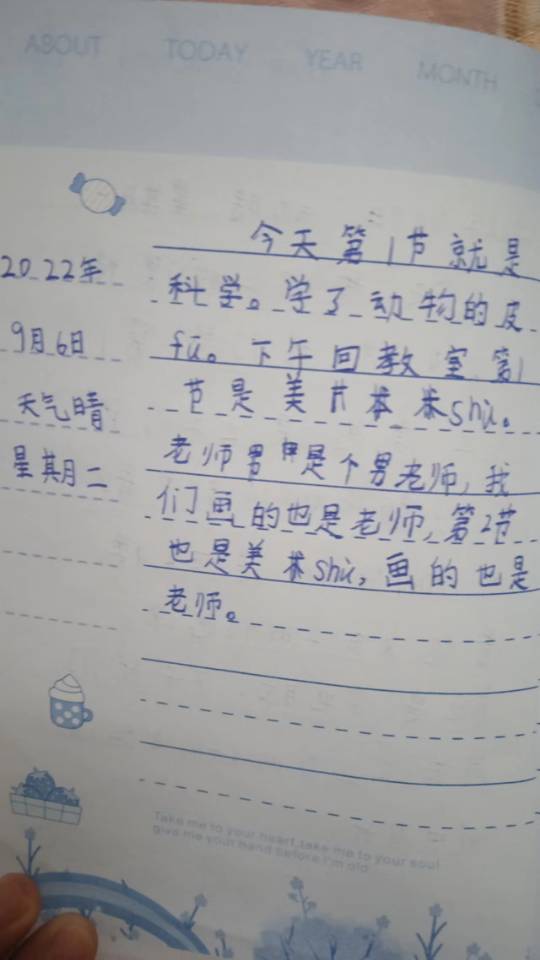 ABOUT TODAY YEAR MONTH
2022年
9月6日
天气晴
星期二
今天第1节就是
科学。学了动物的皮
fū。下午回教室第1
节是美片本本shù。
老师男 是个男老师,我
们画的也是老师,第2节
也是美术shù,画的也是
老师。
Take me to your heart,take me to your soul
give me your hand before I'm old